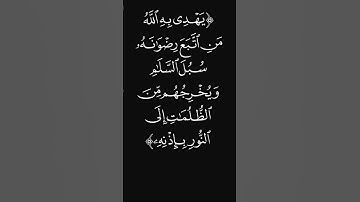 ﴿يَهْدِي بِهِ اللَّهُ
مَنِ اتَّبَعَ رِضْوَانَهُۥ
سُبُلَ السَّلَامِ
وَيُخْرِجُهُم مِّنَ
الظُّلُمَاتِ إِلَى
النُّورِ بِإِذْنِهِۦ﴾